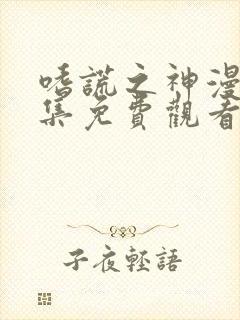 嗜謊之神漫
集免費觀看
子夜輕語